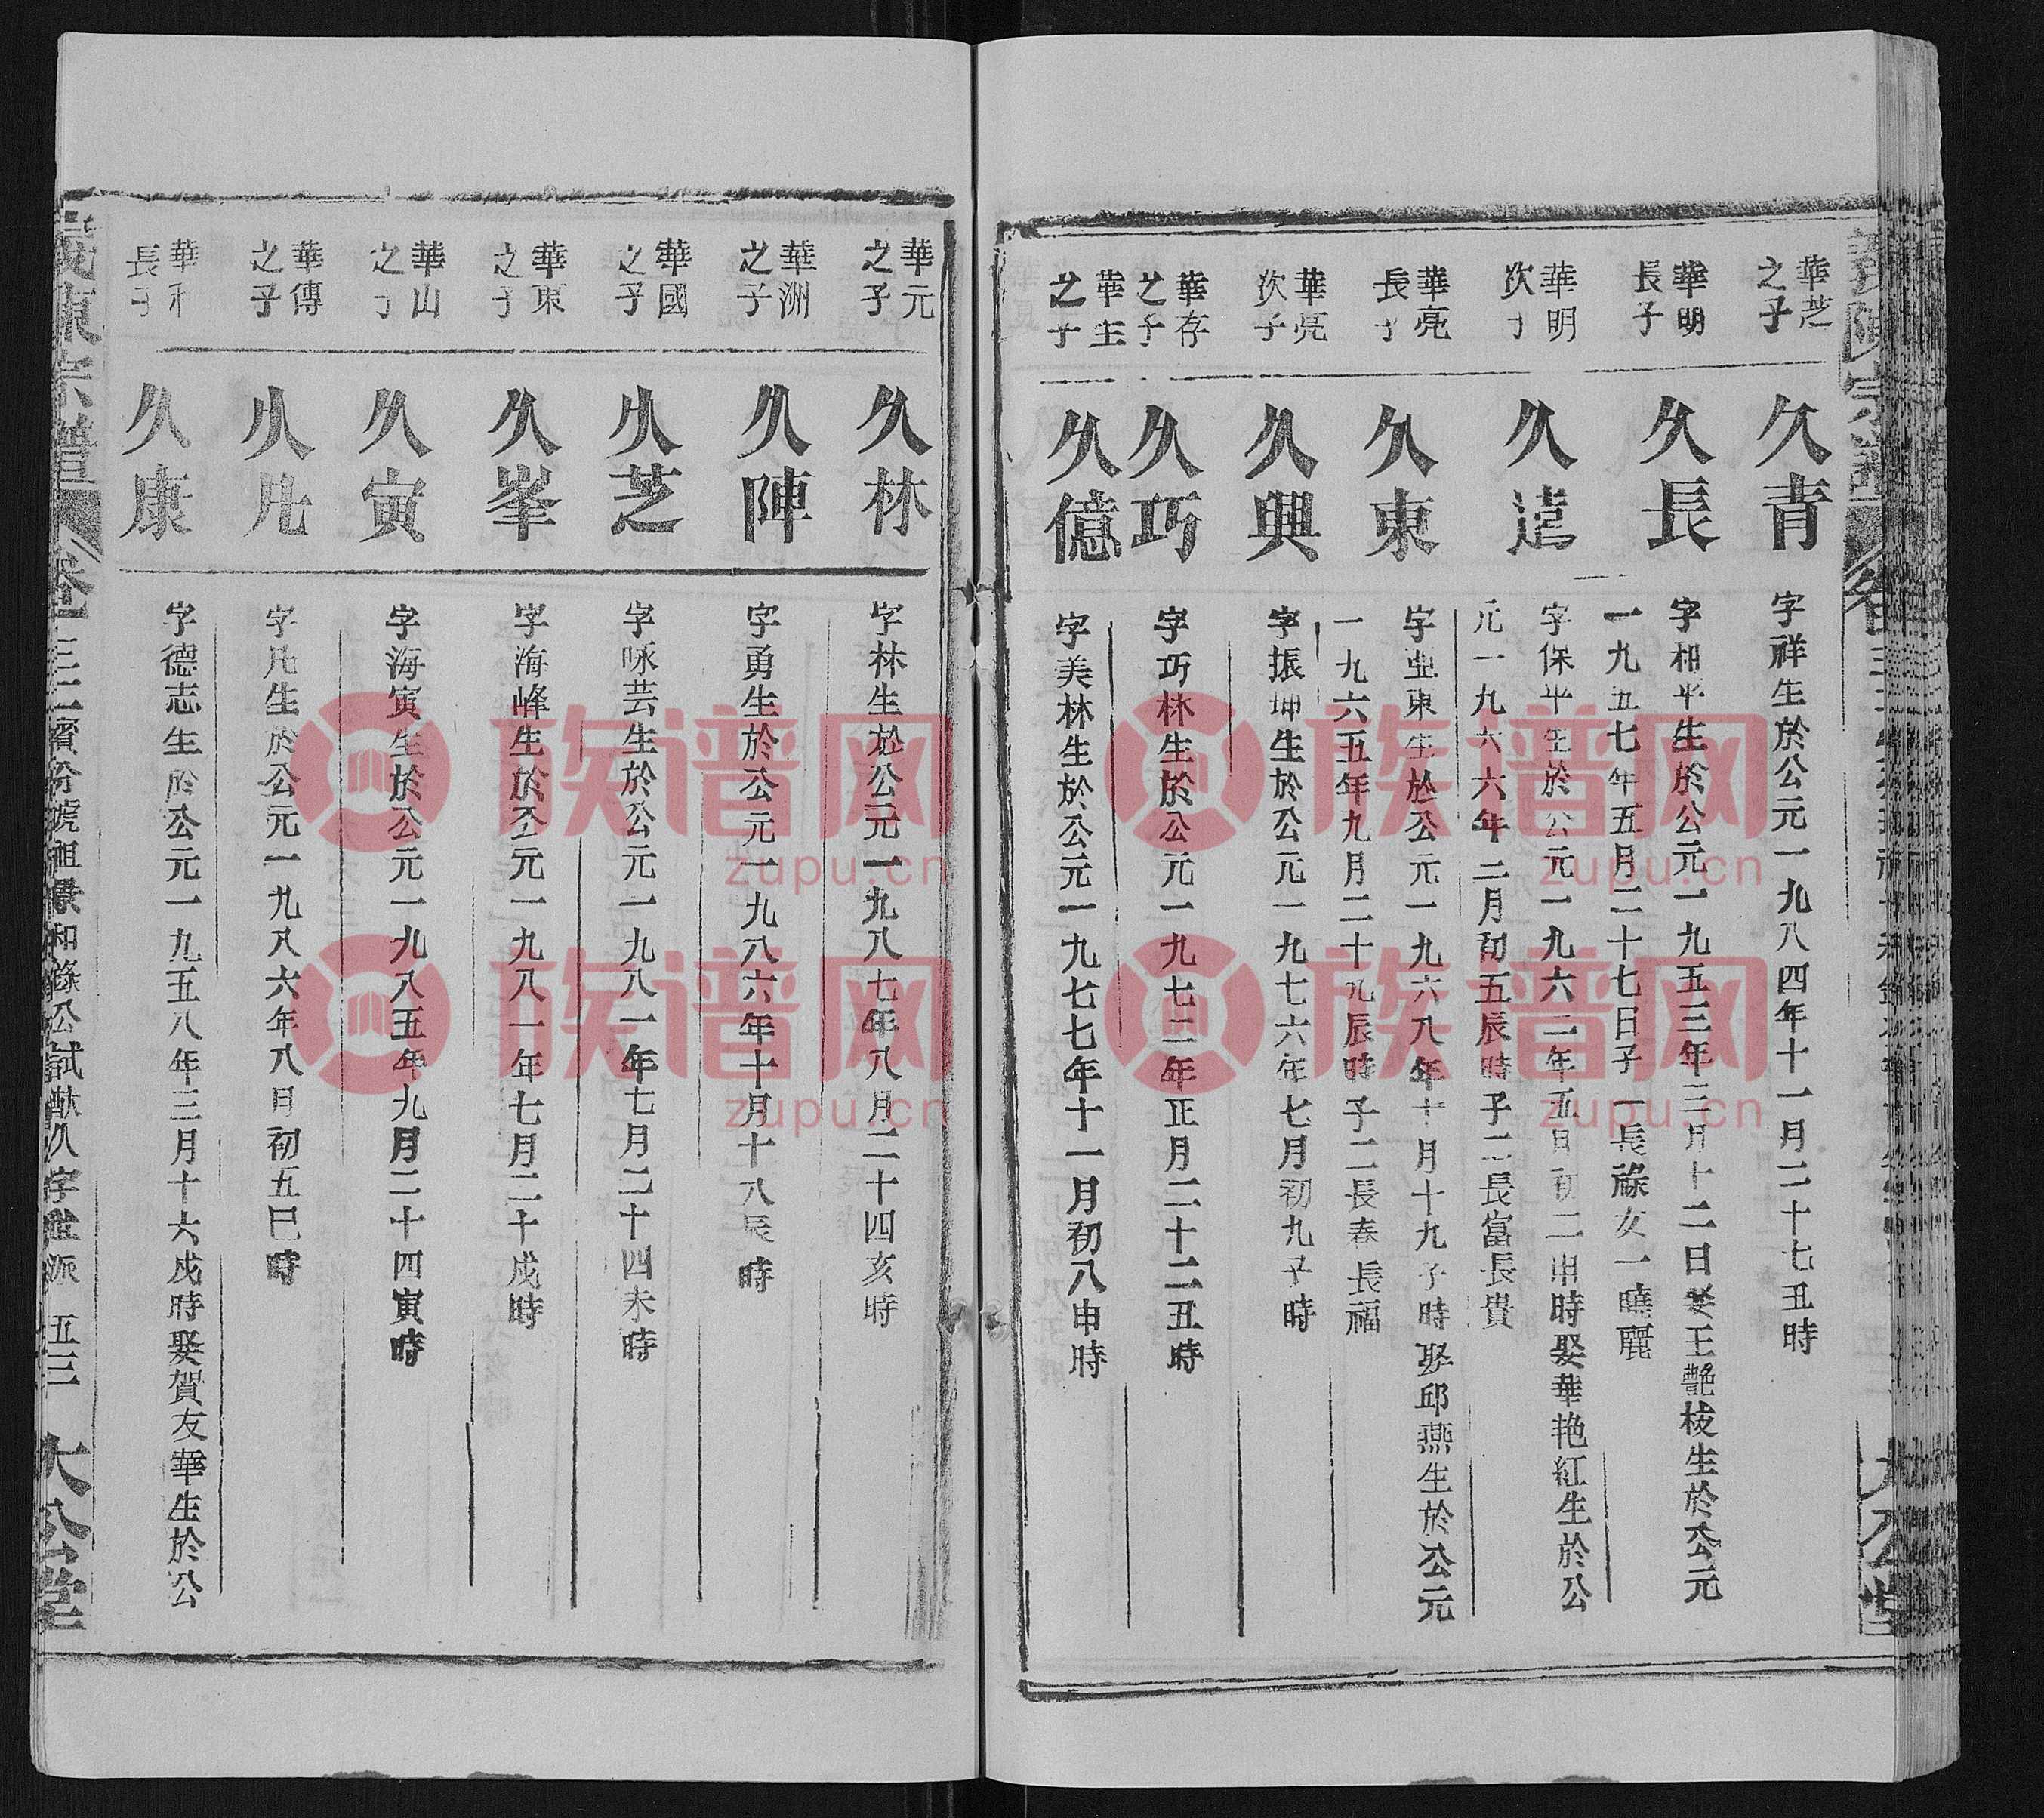 華芝
之子
久青
字祥生於公元一九八四年十一月二十七丑時
華明
長子
久長
字和平生於公元一九五三年三月十二日娶王艷枝生於公元
一九五七年五月二十七日子一長祿女一曉麗
華明
次子
久遠
字保平生於公元一九六二年五月初二申時娶華艳紅生於公
元一九六六年二月初五辰時子二長富長貴
華亮
長子
久東
字亚東生於公元一九六八年十月十九子時娶邱燕生於公元
一九六五年九月二十九辰時子二長春長福
華亮
次子
久興
字振坤生於公元一九七六年七月初九子時
華存
之子
久巧
字巧林生於公元一九七二年正月二十二丑時
華生
之子
久億
字美林生於公元一九七七年十一月初八申時
大公堂
華元
之子
久林
字林生於公元一九八七年八月二十四亥時
華洲
之子
久陣
字勇生於公元一九八六年十月十八辰時
華國
之子
久芝
字咏芸生於公元一九八一年七月二十四未時
華東
之子
久峯
字海峰生於公元一九八一年七月二十戌時
華山
之子
久寅
字海寅生於公元一九八五年九月二十四寅時
華傳
之子
久凡
字凡生於公元一九八六年八月初五巳時
華利
長子
久康
字德志生於公元一九五八年三月十六戌時娶賀友華生於公
義陳宗譜
五三
大公堂
族谱网
zupu.cn
族谱网
zupu.cn
族谱网
zupu.cn
族谱网
zupu.cn